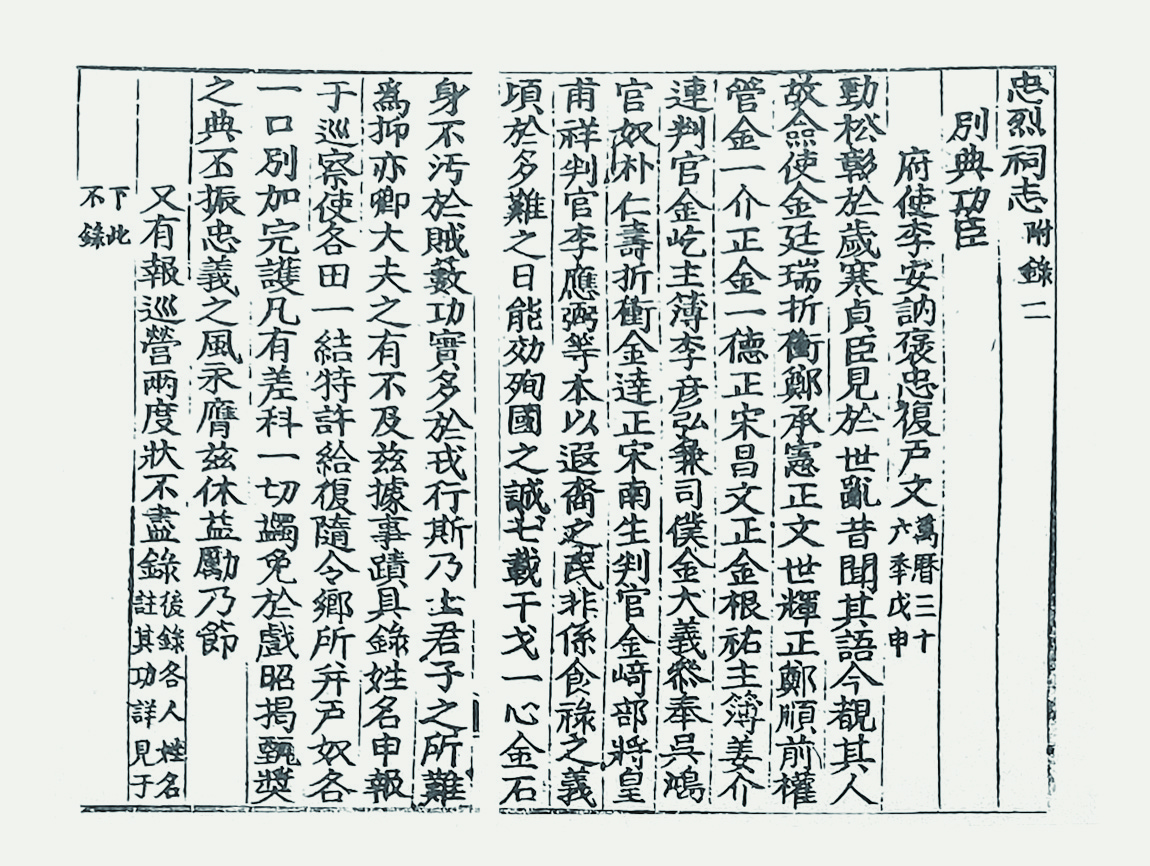 忠烈祠志 附錄二
別典功臣
府使李安訥褒忠復戶文 萬曆三十六年戊申
勁松彰於歲寒貞臣見於世亂昔聞其語今覩其人
故僉使金廷瑞折衝鄭承憲正文世輝正鄭順前權
管金一介正金一德正宋昌文正金根祐主簿姜介
連判官金屹主簿李彦弘兼司僕金大義參奉吳鴻
官奴朴仁壽折衝金達正宋南生判官金﨑部將皇
甫祥判官李應弼等本以遐裔之民非係食祿之義
頃於多難之日能効殉國之誠七載干戈一心金石
身不汚於賊藪功實多於戎行斯乃士君子之所難
爲抑亦卿大夫之有不及玆據事蹟具錄姓名申報
于巡察使各田一結特許給復隨令鄕所并戶奴各
一口別加完護凡有差科一切蠲免於戲昭揭甄奬
之典丕振忠義之風永膺玆休益勵乃節
又有報巡營兩度狀不盡錄 後錄各人姓名註其功詳見于
下此不錄